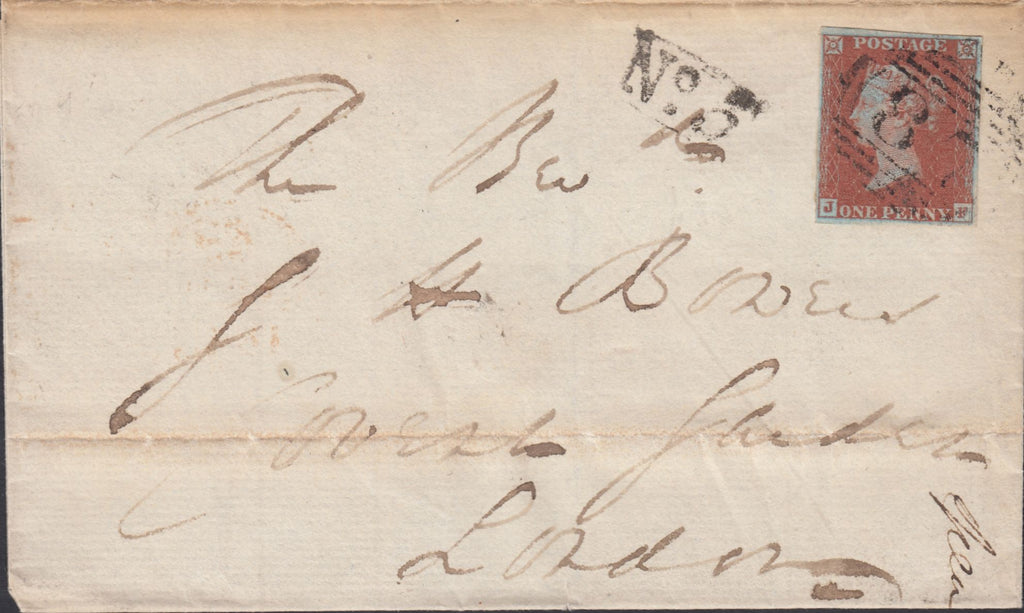 No. 5
POSTAGE
8
J ONE PENNY F
The Revd.
J H Bowers
Covent Garden
London